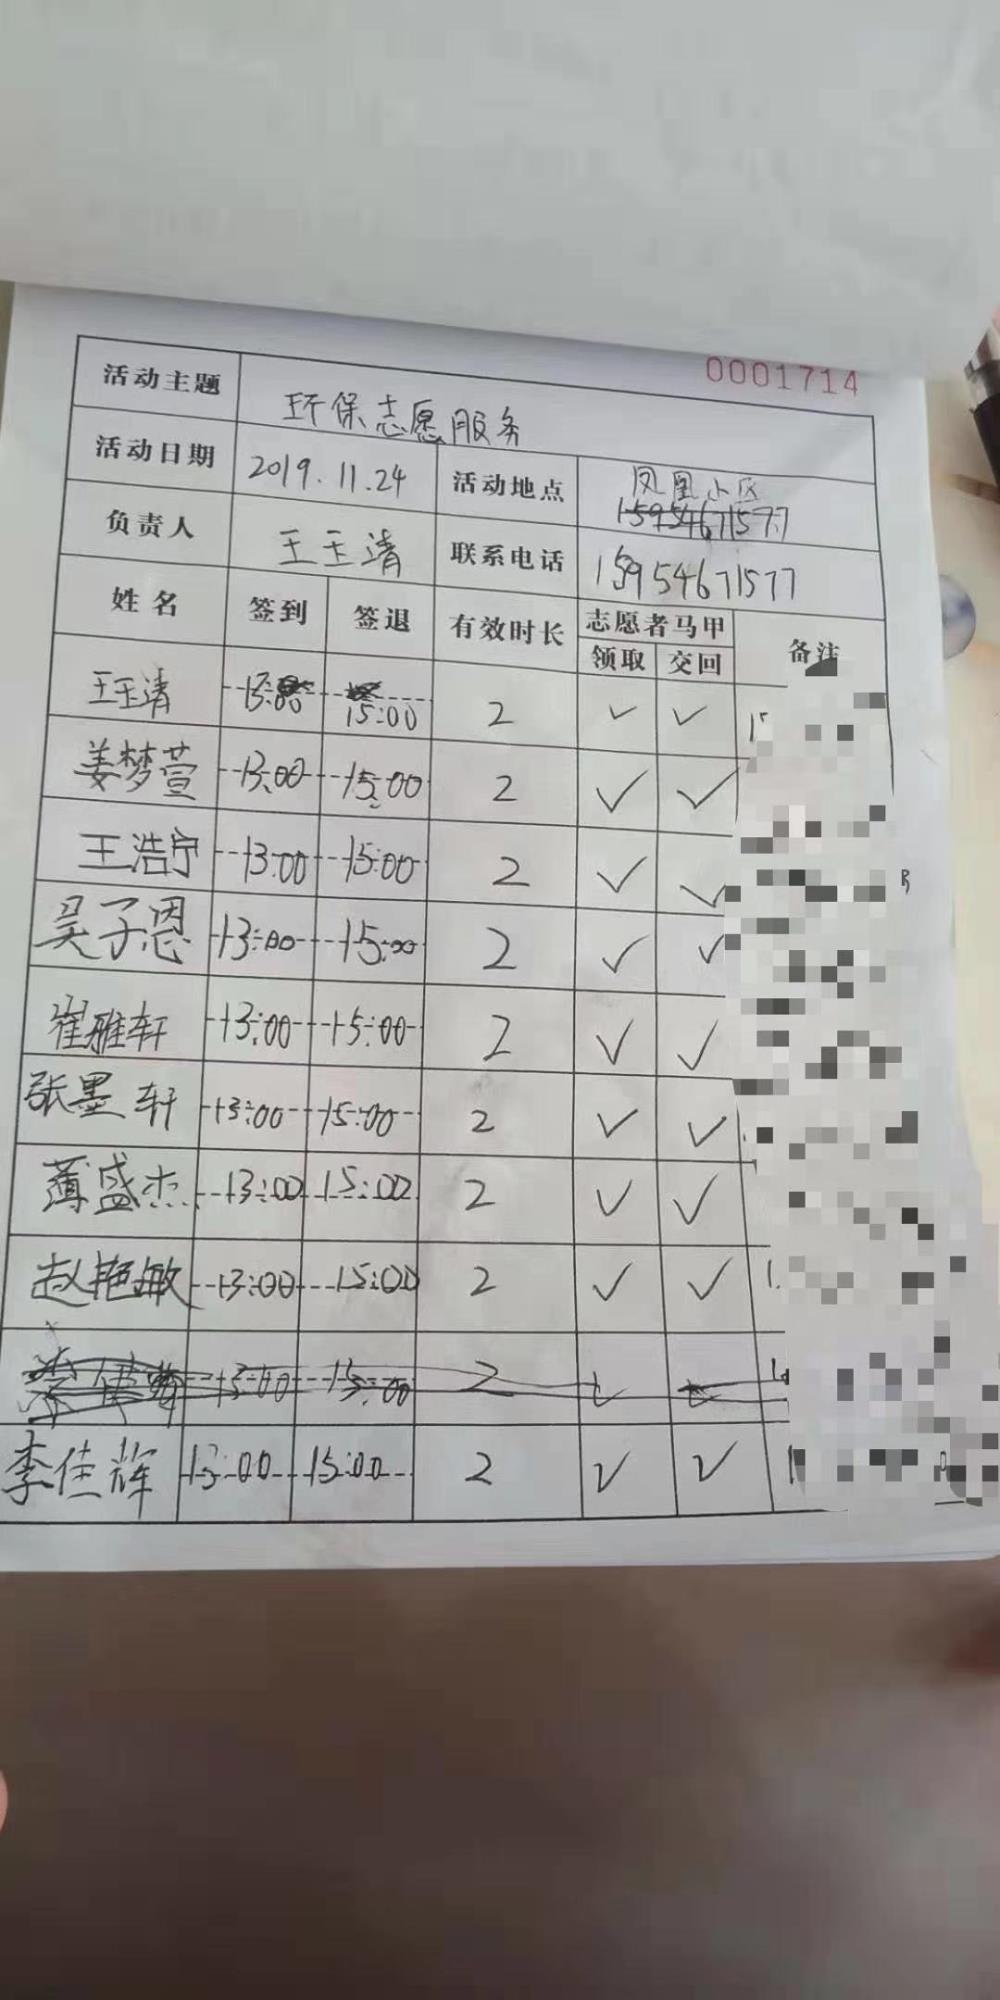 0001714
活动主题 环保志愿服务
活动日期 2019.11.24 活动地点 凤凰小区
15954671577
负责人 王玉清 联系电话 15954671577
姓名 签到 签退 有效时长 志愿者马甲 备注
领取 交回
王玉清 13:00 15:00 2 ✓ ✓
姜梦萱 13:00 15:00 2 ✓ ✓
王浩宁 13:00 15:00 2 ✓ ✓
吴子恩 13:00 15:00 2 ✓ ✓
崔雅轩 13:00 15:00 2 ✓ ✓
张墨轩 13:00 15:00 2 ✓ ✓
薄盛杰 13:00 15:00 2 ✓ ✓
赵艳敏 13:00 15:00 2 ✓ ✓
13:00 15:00 2
李佳辉 13:00 15:00 2 ✓ ✓